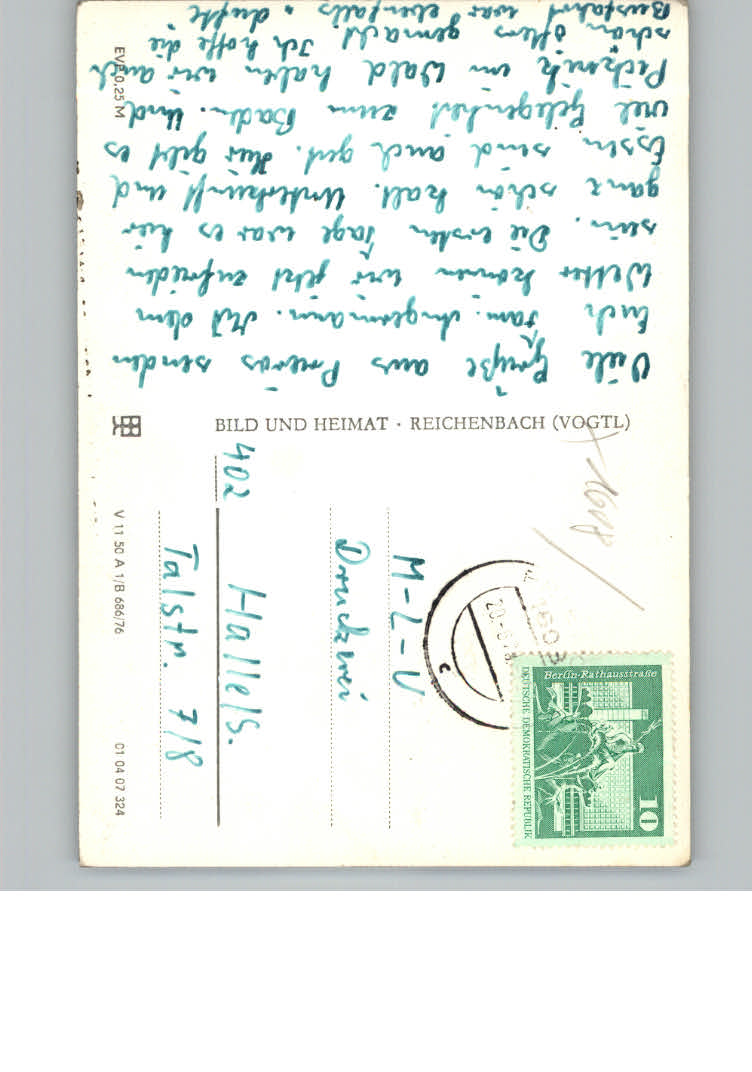 Viele Grüße aus Prerow senden
Euch Fam. Angermann. Mit dem
Wetter können wir jetzt zufrieden
sein. Die ersten Tage war es hier
ganz schön kalt. Unterkunft und
Essen sind auch gut. Hier gibt es
viel Gelegenheit zum Baden. Und
Picknick im Wald haben wir auch
schon öfters gemacht. Ich hoffe die
Busfahrt war ebenfalls dufte
EVP 0,25 M
BILD UND HEIMAT · REICHENBACH (VOGTL)
V 11 50 A 1/B 686/76
01 04 07 324
M-L-U
Druckerei
402 Halle/S.
Talstr. 7/8
Berlin-Rathausstraße
DEUTSCHE DEMOKRATISCHE REPUBLIK
10
c